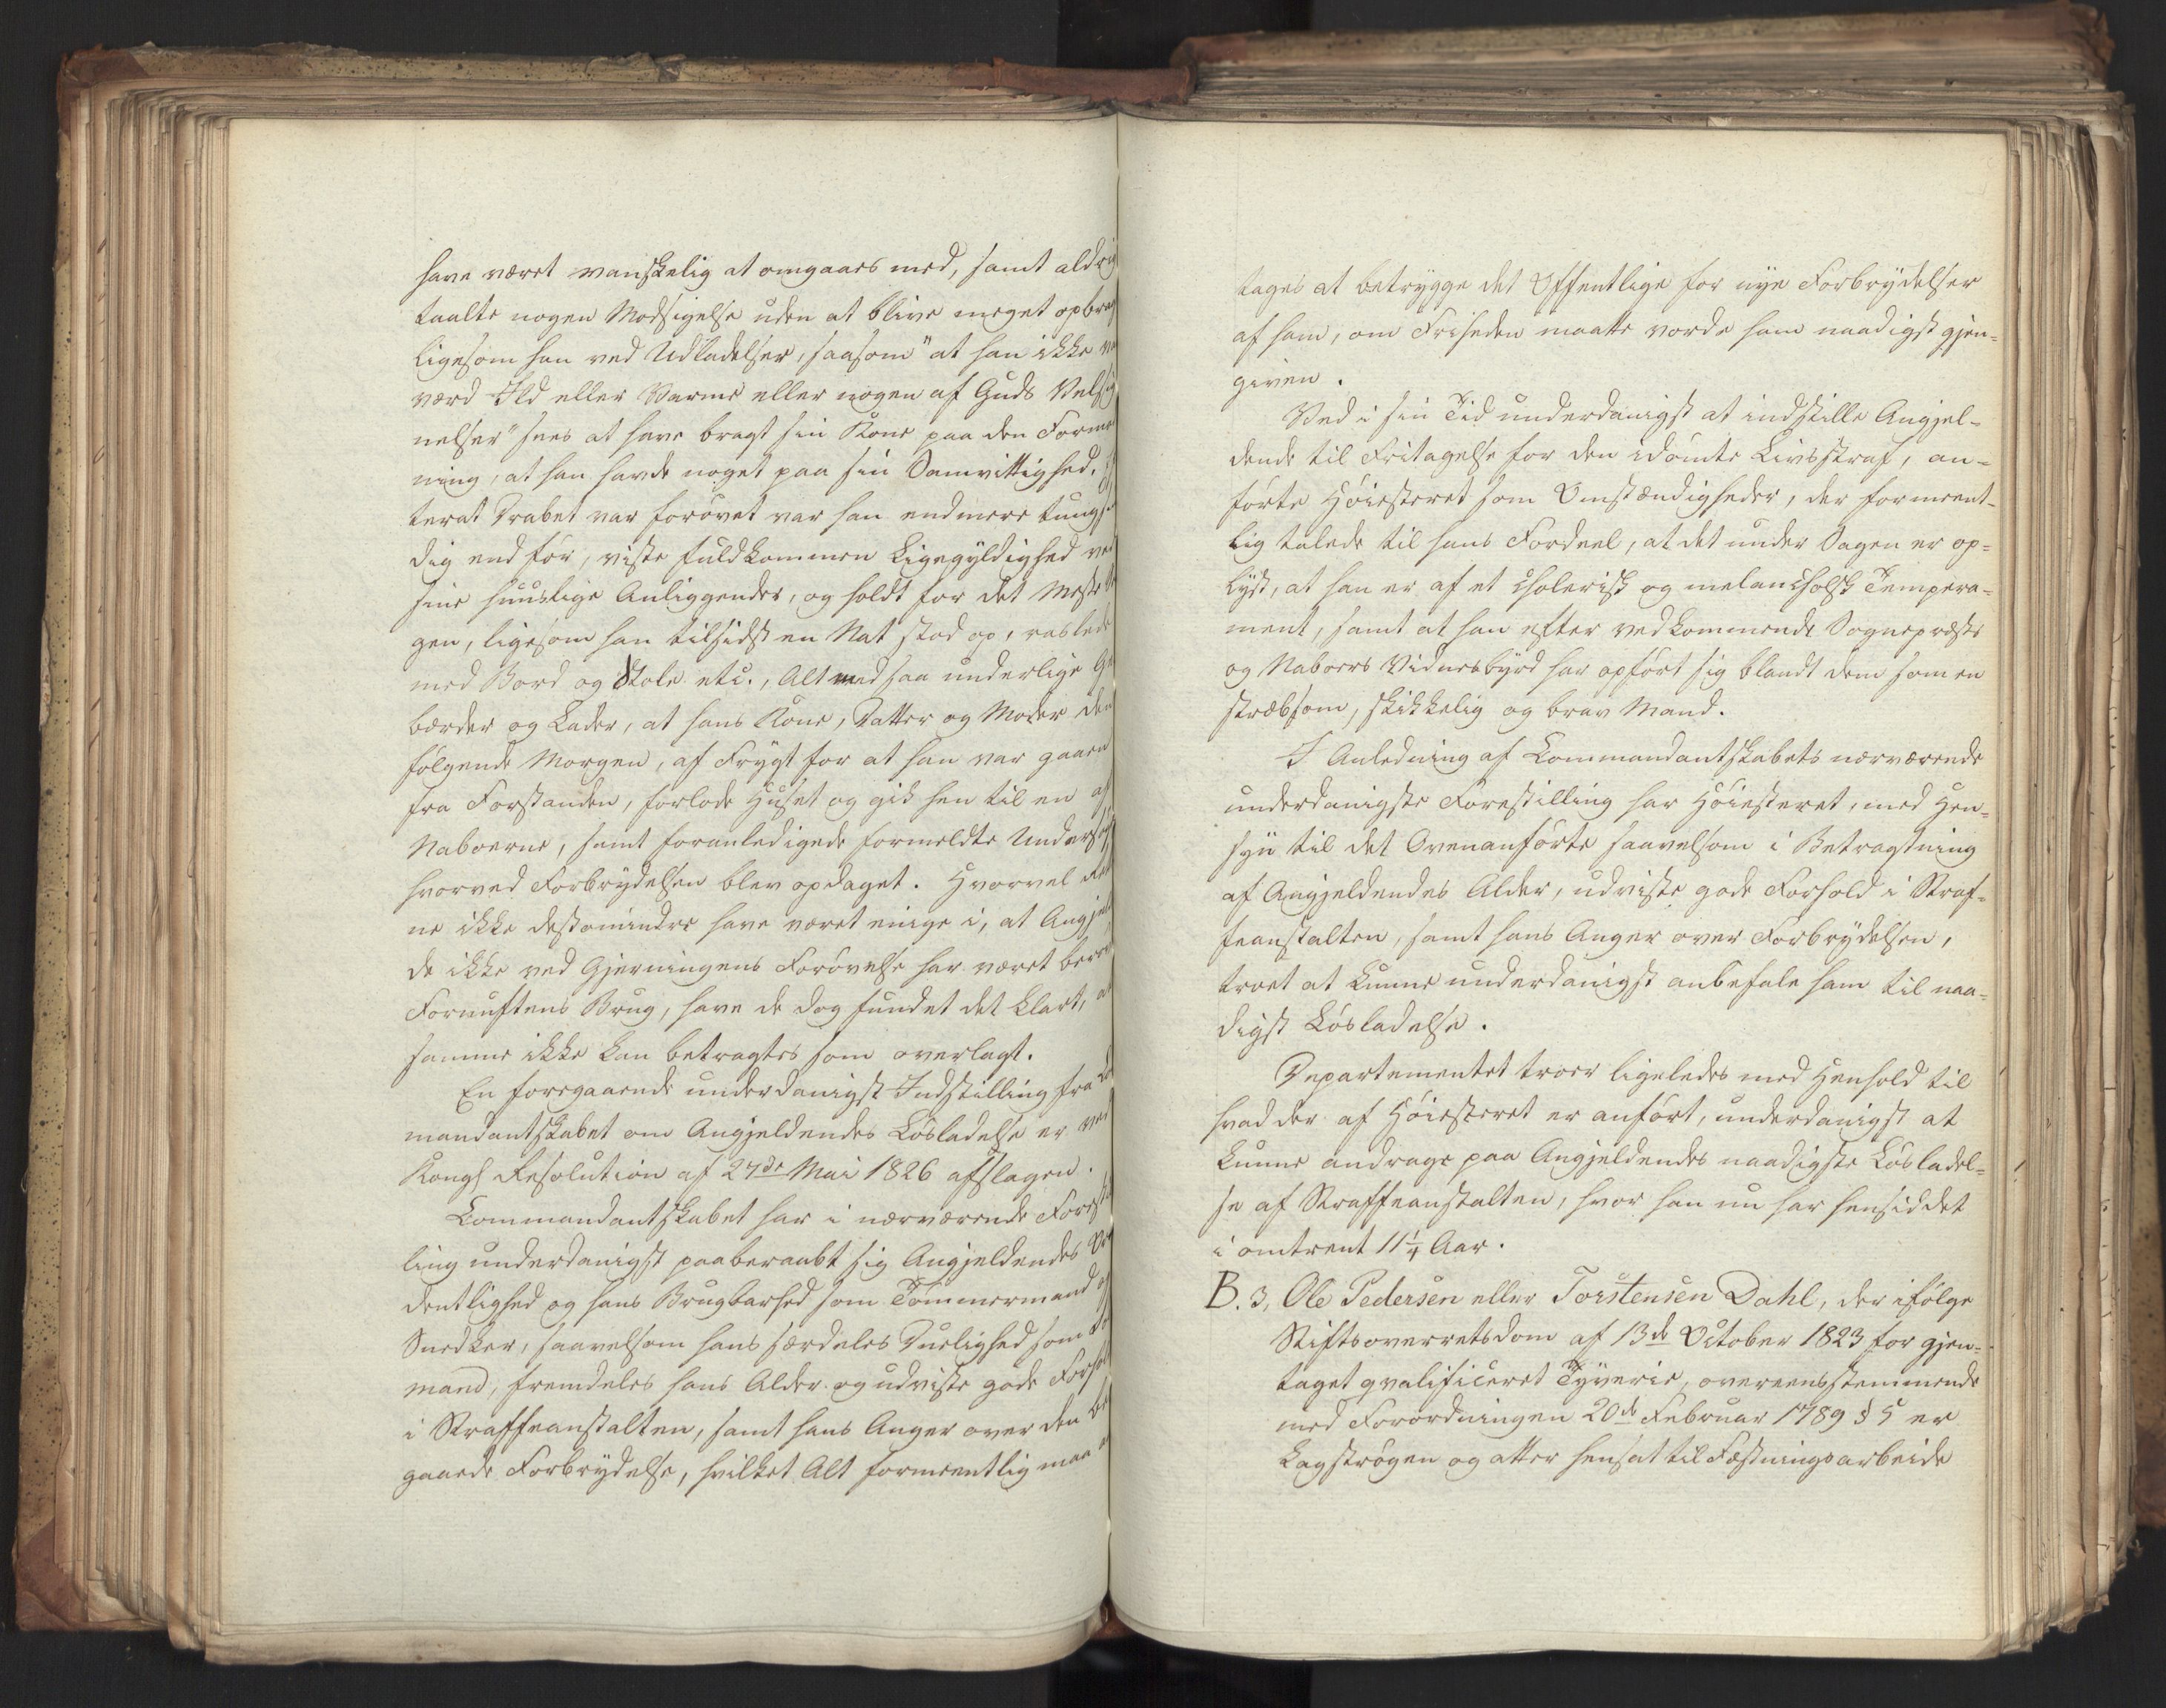 have været vanskelig at omgaaes med, samt aldrig
taalte nogen Modsigelse uden at blive meget opbrag
ligesom han ved Udladelser, saasom "at han ikke va
værd Ild eller Varme eller nogen af Guds Velsig
nelser" sees at have bragt sin Kone paa den Forme
ning, at han havde noget paa sin Samvittighed.
terat Drabet var forøvet var han endmere tungsin
dig end før, viste fuldkommen Ligegyldighed ved
sine huuslige Anliggender, og holdt for det Meste
gen, ligesom han tilsidst en Nat stod op, raslede
med Bord og Stole etc., Alt med saa underlige Ge
bærder og Lader, at hans Kone, Datter og Moder den
følgende Morgen, af Frygt for at han var gaaen
fra Forstanden, forlode Huset og gik hen til en af
Naboerne, samt foranledigede formeldte Undersøg
hvorved Forbrydelsen blev opdaget. Hvorvel Ret
ne ikke destomindre have været enige i, at Angjel
de ikke ved Gjerningens Forøvelse har været berø
Fornuftens Brug, have de dog fundet det klart, at
samme ikke kan betragtes som overlagt.
En foregaaende underdanigst Indstilling fra Co
mandantskabet om Angjeldendes Løsladelse er ved
Kongl Resolution af 27de Mai 1826 afslagen.
Commandantskabet har i nærværende Forestil
ling underdanigst paaberaabt sig Angjeldendes Or
dentlighed og hans Brugbarhed som Tømmermand og
Snedker, saavelsom hans særdeles Duelighed som
mand, fremdeles hans Alder og udviste gode Forhol
i Straffeanstalten, samt hans Anger over den be
gaaede Forbrydelse, hvilket Alt formeentlig maa
tages at betrygge det Offentlige for nye Forbrydelser
af ham, om Friheden maatte vorde ham naadigst gjen-
given.
Ved i sin Tid underdanigst at indstille Angjel-
dende til Fritagelse for den idømte Livsstraf, an-
førte Høiesteret som Omstændigheder, der formeent-
lig talede til hans Fordeel, at det under Sagen er op-
lyst, at han er af et cholerisk og melancholsk Tempera-
ment, samt at han efter vedkommende Sognepræsts
og Naboers Vidnesbyrd har opført sig blandt dem som en
stræbsom, skikkelig og brav Mand.
I Anledning af Commandantskabets nærværende
underdanigste Forestilling har Høiesteret, med Hen-
syn til det Ovenanførte saavelsom i Betragtning
af Angjeldendes Alder, udviste gode Forhold i Straf-
feanstalten, samt hans Anger over Forbrydelsen,
troet at kunne underdanigst anbefale ham til naa-
digst Løsladelse.
Departementet troer ligeledes med Henhold til
hvad der af Høiesteret er anført, underdanigst at
kunne andrage paa Angjeldendes naadigste Løsladel-
se af Straffeanstalten, hvor han nu har hensiddet
i omtrent 11 1/4 Aar.
B. 3, Ole Pedersen eller Torstensen Dahl, der ifølge
Stiftsoverretsdom af 13de October 1823 for gjen-
taget qvalificeret Tyverie, overeensstemmende
med Forordningen 20de Februar 1789 § 5 er
kagstrøgen og atter hensat til Fæstningsarbeide